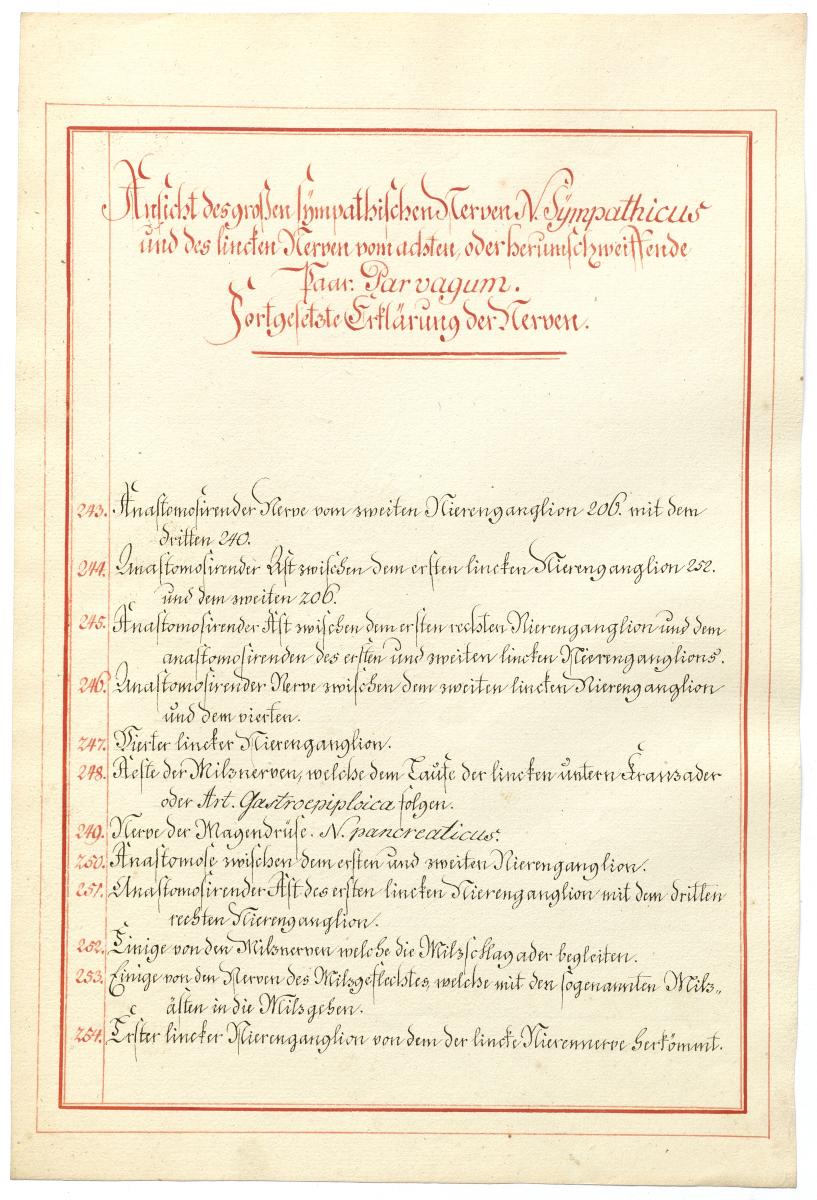 Ansicht des großen sympathischen Nerven N. Sÿmpathicus
und des lincken Nerven vom achten, oder herumschweiffende
Paar. Par vagum.
Fortgesetzte Erklärung der Nerven.
243. Anastomosirender Nerve vom zweiten Nierenganglion 206. mit dem
dritten 240.
244. Anastomosirender Ast zwischen dem ersten lincken Nierenganglion 252.
und dem zweiten 206.
245. Anastomosirender Ast zwischen dem ersten rechten Nierenganglion und dem
anastomosirenden des ersten und zweiten lincken Nierenganglions.
246. Anastomosirender Nerve zwischen dem zweiten lincken Nierenganglion
und dem vierten.
247. Vierter lincker Nierenganglion.
248. Aeste der Milznerven, welche dem Laufe der lincken untern Kranzader
oder Art. Gastroepiploica folgen.
249. Nerve der Magendrüse. N. pancreaticus.
250. Anastomose zwischen dem ersten und zweiten Nierenganglion.
251. Anastomosirender Ast des ersten lincken Nierenganglion mit dem dritten
rechten Nierenganglion.
252. Einige von den Milznerven welche die Milzschlagader begleiten.
253. Einige von den Nerven des Milzgeflechtes, welche mit den sogenannten Milz„
ästen in die Milz gehen.
254. Erster lincker Nierenganglion von dem der lincke Nierennerve herkömmt.